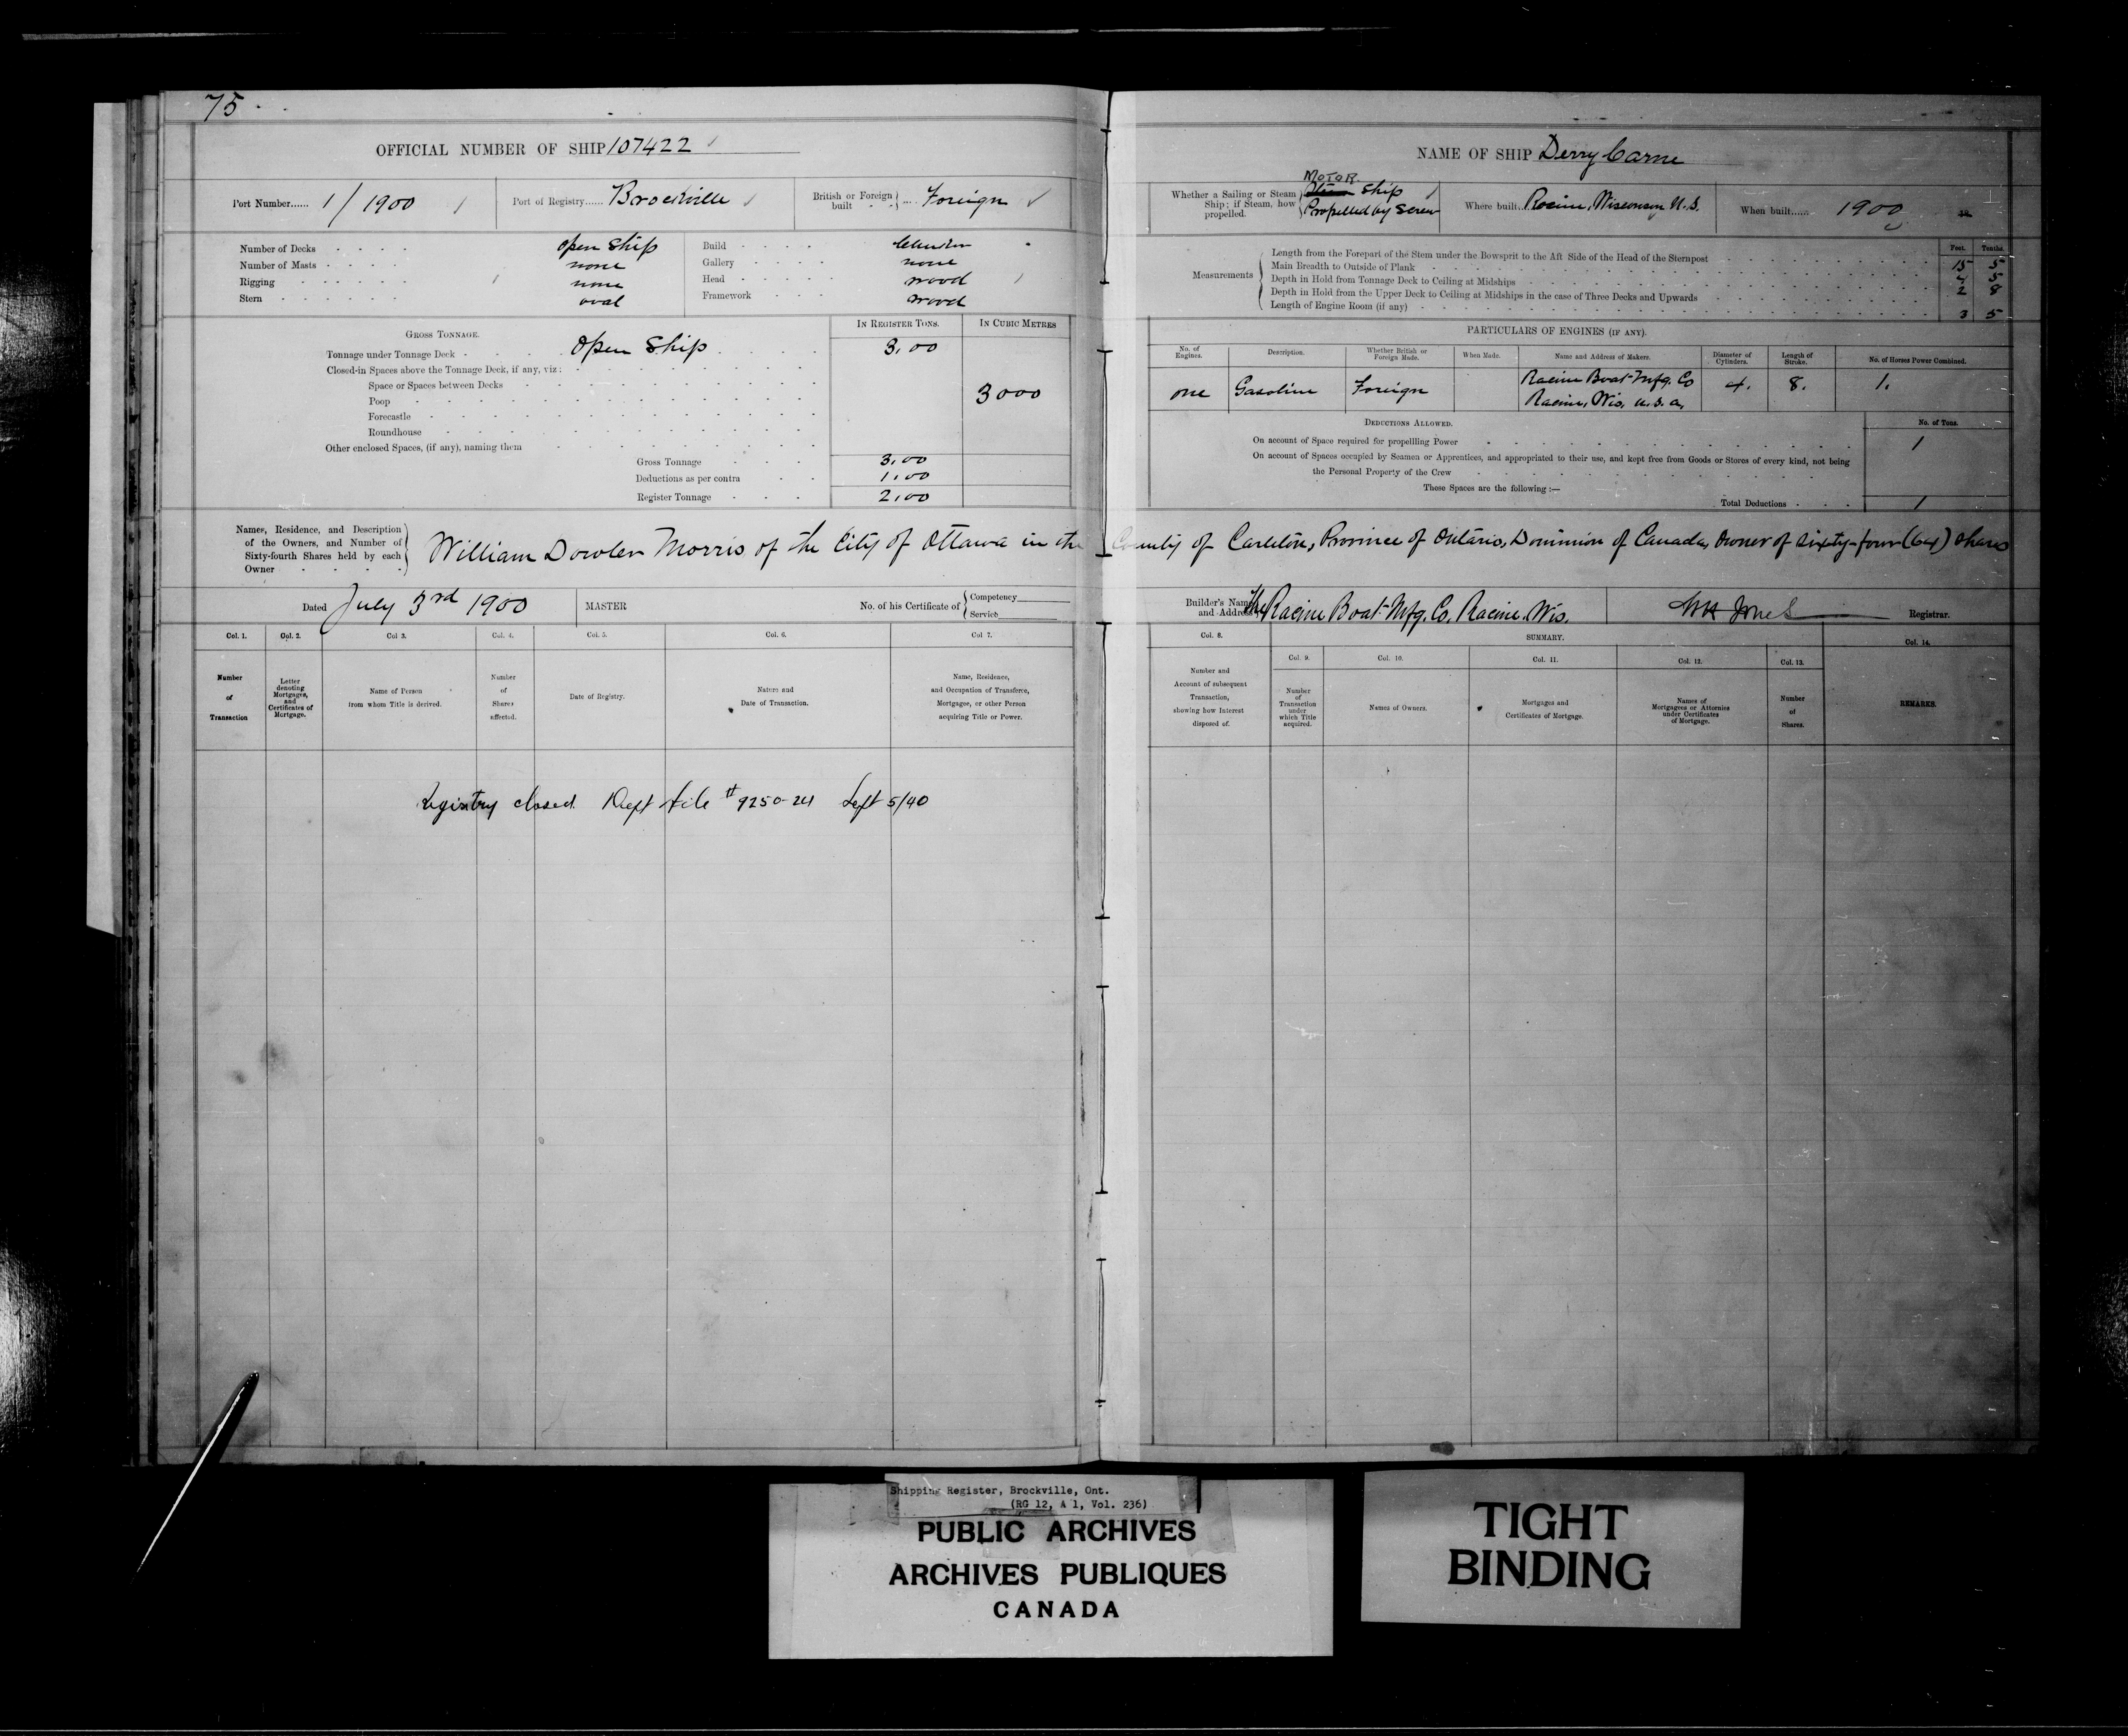 75
OFFICIAL NUMBER OF SHIP 107422
Port Number...... 1/1900
Port of Registry...... Brockville
British or Foreign built .... Foreign
Number of Decks - - - - open ship
Number of Masts - - - - none
Rigging - - - - none
Stern - - - - oval
Build - - - -
Gallery - - - - none
Head - - - - wood
Framework - - - wood
GROSS TONNAGE.
IN REGISTER TONS.
IN CUBIC METRES
Tonnage under Tonnage Deck - - - Open Ship 3.00
Closed-in Spaces above the Tonnage Deck, if any, viz:
Space or Spaces between Decks
Poop 3000
Forecastle
Roundhouse
Other enclosed Spaces, (if any), naming them
Gross Tonnage 3.00
Deductions as per contra 1.00
Register Tonnage 2.00
NAME OF SHIP Derry Carne
Whether a Sailing or Steam Ship; if Steam, how propelled.
MOTOR
Steam Ship
Propelled by Screw
Where built.. Racine, Wisconsin U.S.
When built..... 1900
18
Feet. Tenths.
Measurements
Length from the Forepart of the Stem under the Bowsprit to the Aft Side of the Head of the Sternpost 15 5
Main Breadth to Outside of Plank 4 5
Depth in Hold from Tonnage Deck to Ceiling at Midships 2 8
Depth in Hold from the Upper Deck to Ceiling at Midships in the case of Three Decks and Upwards
Length of Engine Room (if any) 3 5
PARTICULARS OF ENGINES (IF ANY).
No. of Engines.
Description.
Whether British or Foreign Made.
When Made.
Name and Address of Makers.
Diameter of Cylinders.
Length of Stroke.
No. of Horses Power Combined.
one Gasoline Foreign Racine Boat Mfg. Co 4. 8. 1.
Racine, Wis. U.S.A.
DEDUCTIONS ALLOWED.
No. of Tons.
On account of Space required for propellling Power 1
On account of Spaces occupied by Seamen or Apprentices, and appropriated to their use, and kept free from Goods or Stores of every kind, not being
the Personal Property of the Crew
These Spaces are the following :—
Total Deductions 1
Names, Residence, and Description
of the Owners, and Number of
Sixty-fourth Shares held by each
Owner
William Dowler Morris of the City of Ottawa in the County of Carleton, Province of Ontario, Dominion of Canada, Owner of Sixty-four (64) shares
Dated July 3rd 1900
MASTER
No. of his Certificate of
Competency
Service
Builder's Name and Address
The Racine Boat Mfg. Co. Racine. Wis.
Jones Registrar.
Col. 1.
Col. 2.
Col 3.
Col. 4.
Col. 5.
Col. 6.
Col 7.
Number of Transaction
Letter denoting Mortgages, and Certificates of Mortgage.
Name of Person from whom Title is derived.
Number of Shares affected.
Date of Registry.
Nature and Date of Transaction.
Name, Residence, and Occupation of Transferee, Mortgagee, or other Person acquiring Title or Power.
Col. 8.
SUMMARY.
Col. 9.
Col. 10.
Col. 11.
Col. 12.
Col. 13.
Col. 14.
Number and Account of subsequent Transaction, showing how Interest disposed of.
Number of Transaction under which Title acquired.
Names of Owners.
Mortgages and Certificates of Mortgage.
Names of Mortgagees or Attornies under Certificates of Mortgage.
Number of Shares.
REMARKS.
Registry closed. Dept file # 9250-241 Sept 5/40
Shipping Register, Brockville, Ont.
(RG 12, A 1, Vol. 236)
PUBLIC ARCHIVES
ARCHIVES PUBLIQUES
CANADA
TIGHT
BINDING